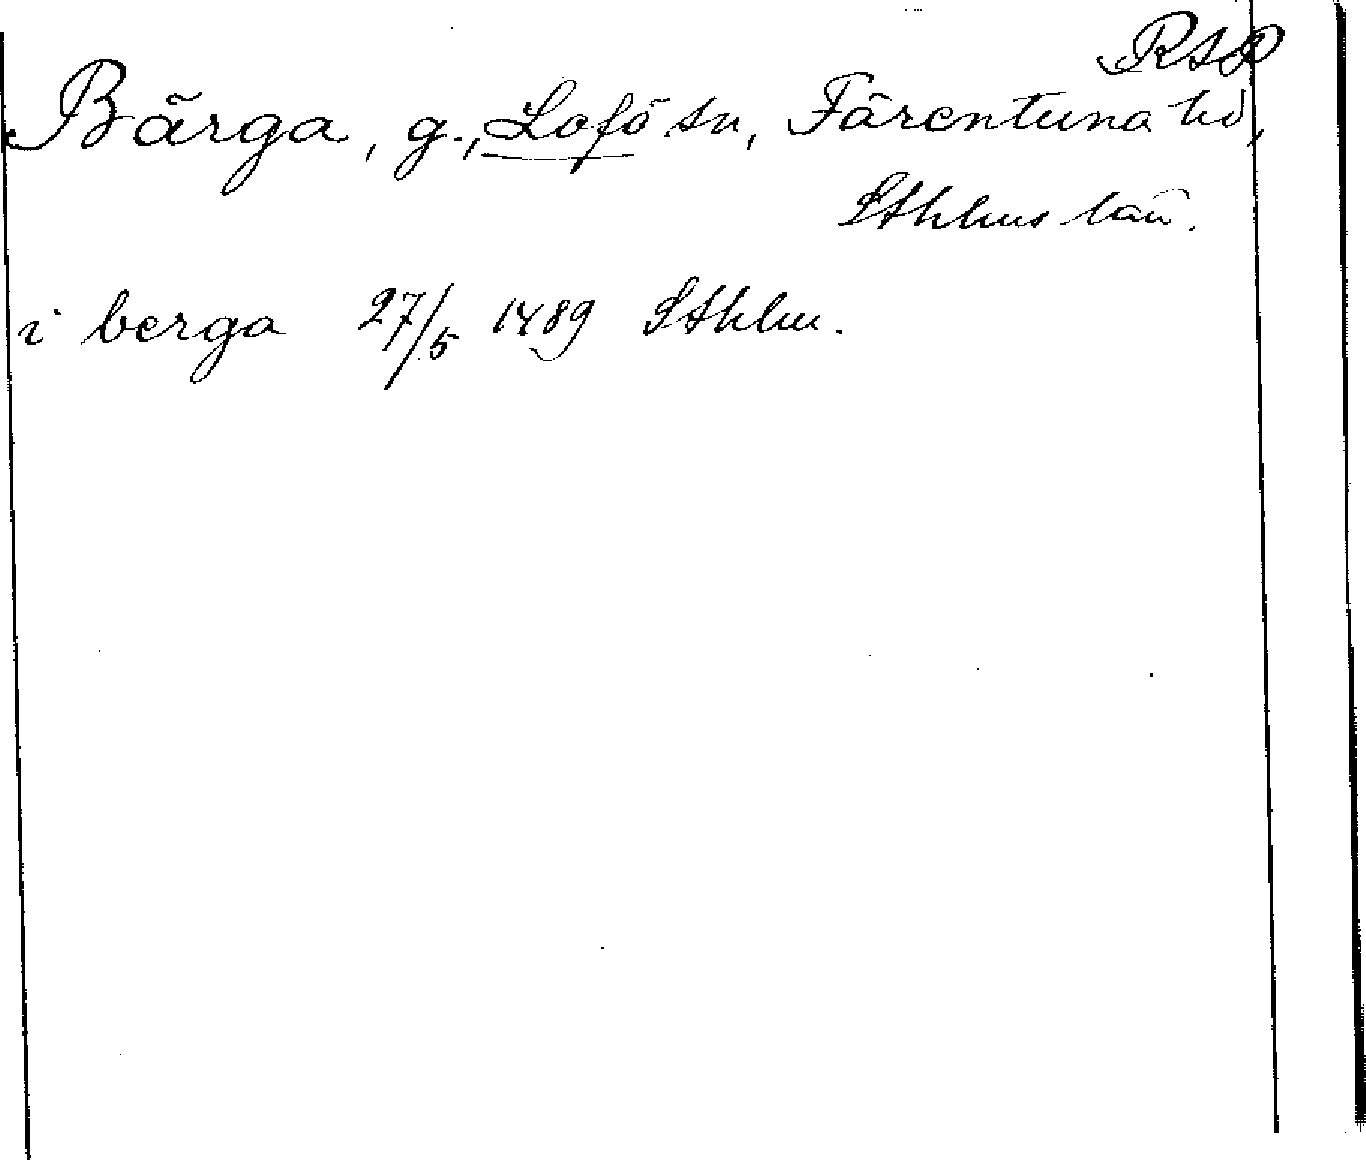 RAP
Bärga, g., Lofö sn, Färentuna hd,
Sthlms län.
i berga 27/5 1489 Sthlm.